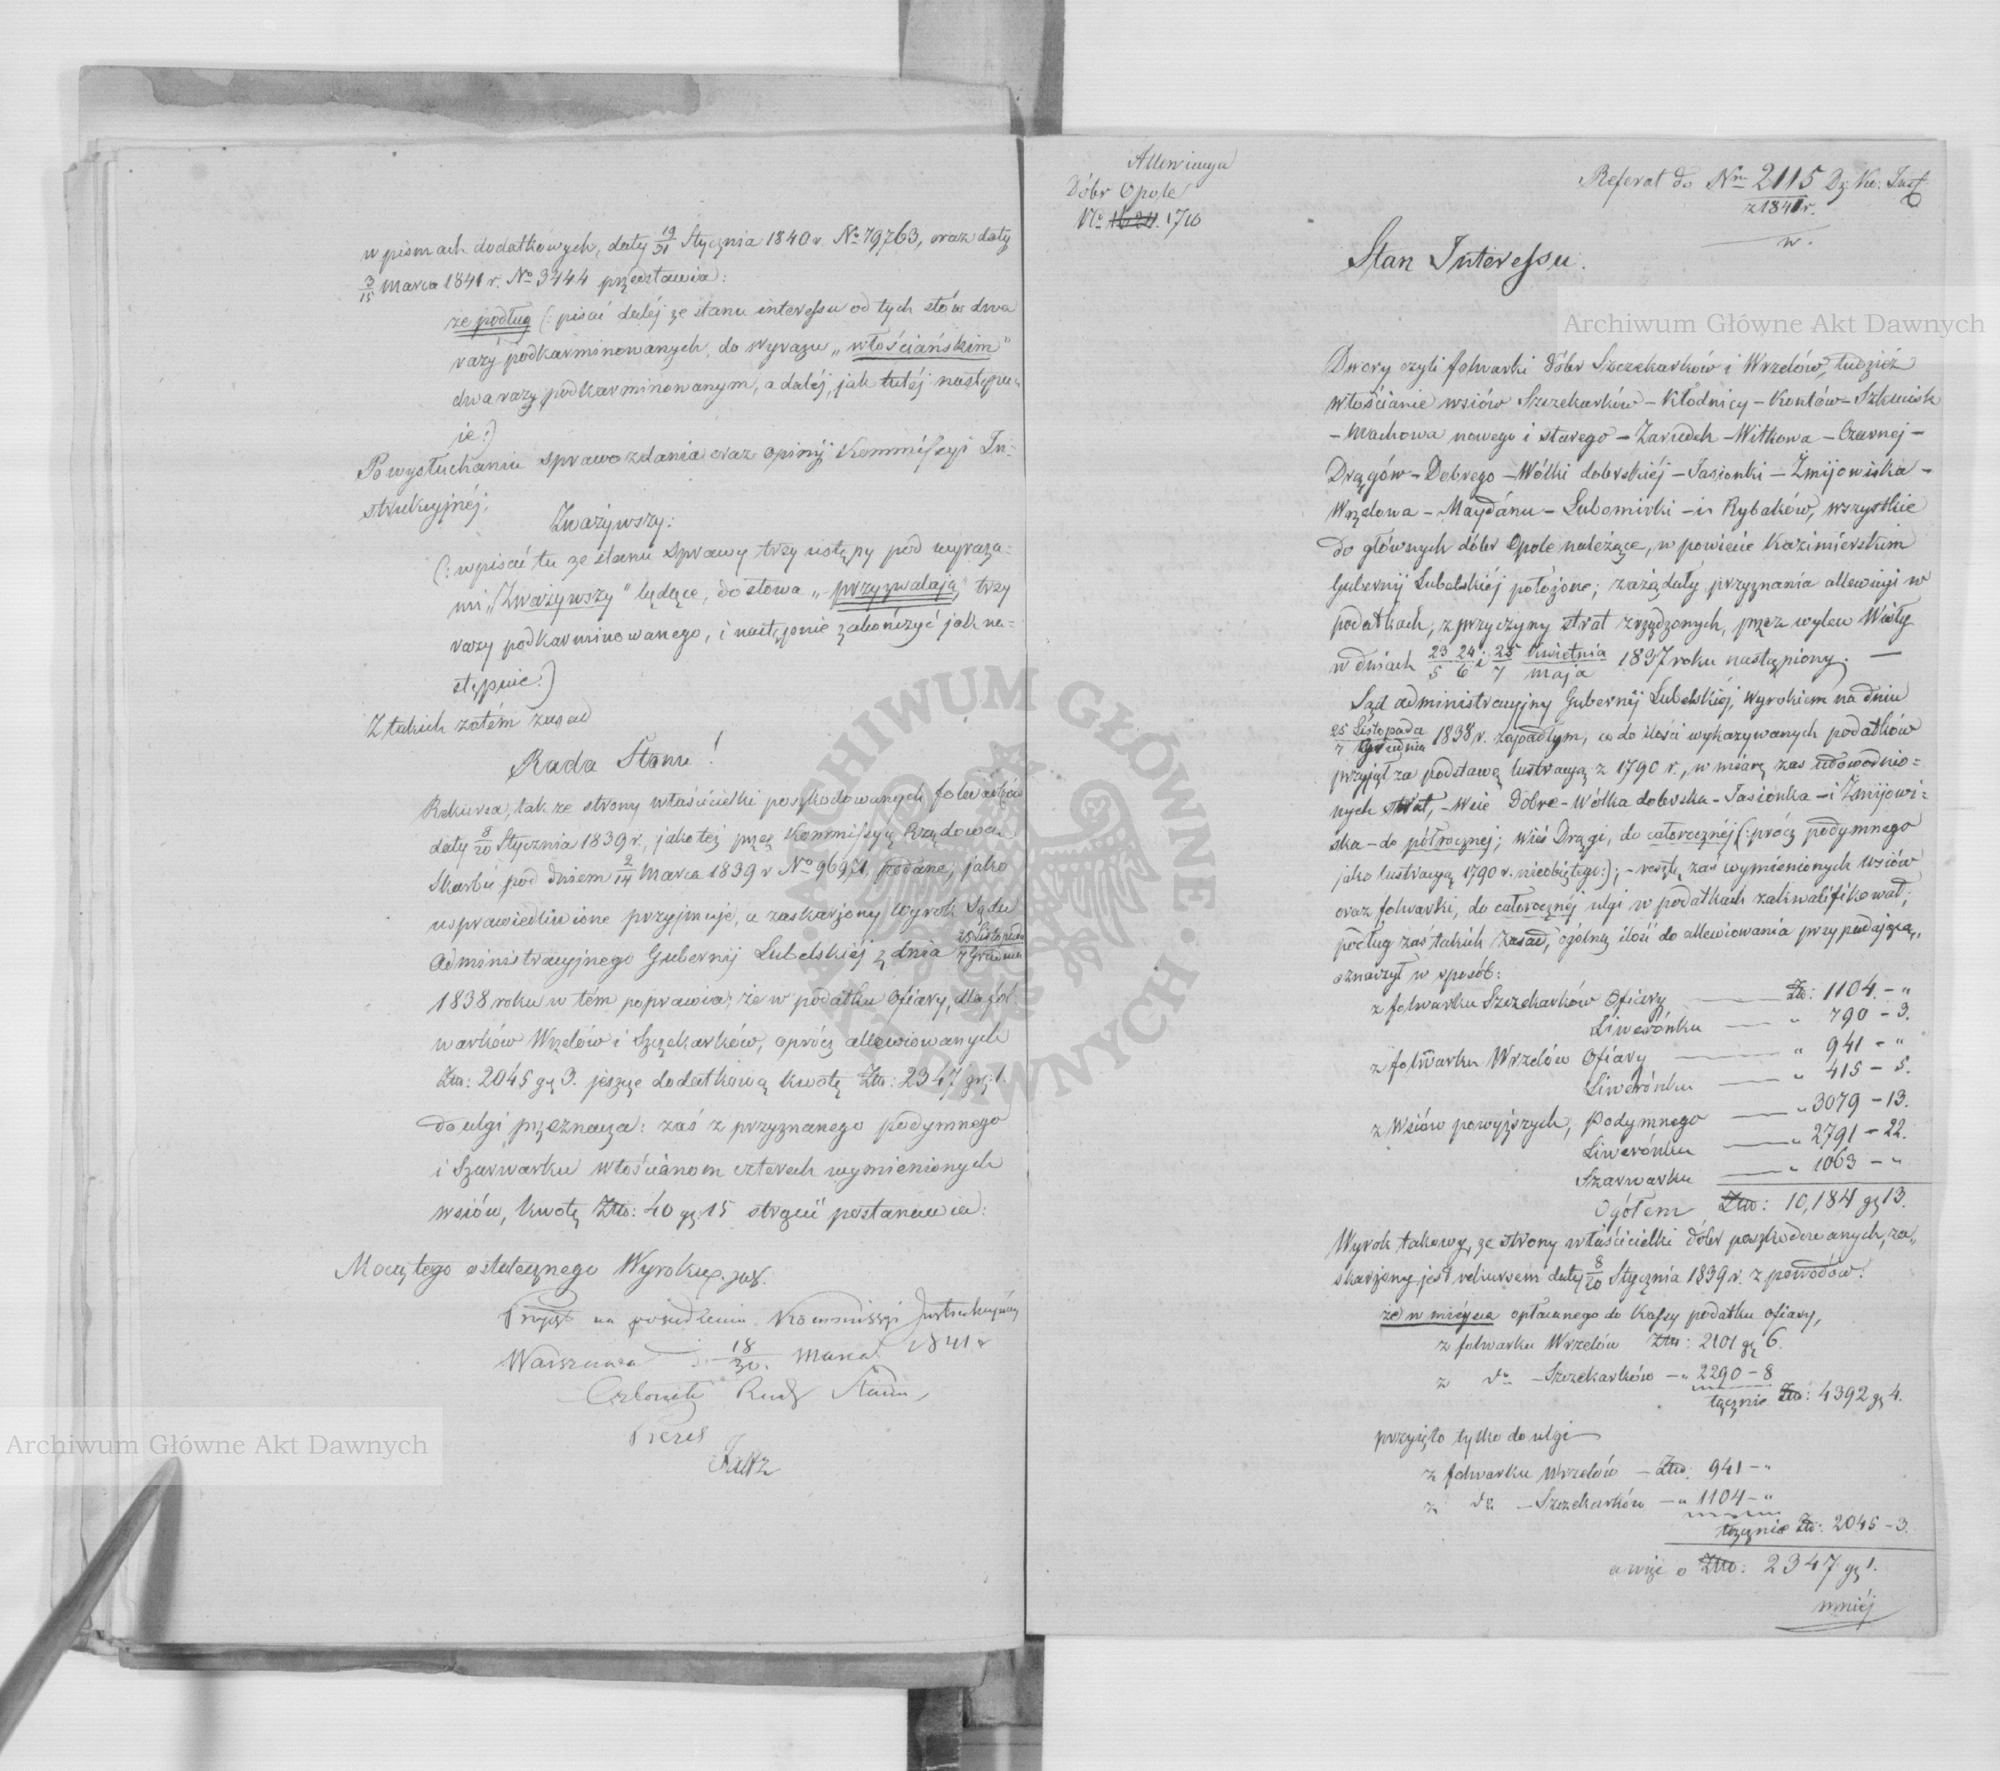 w pismach dodatkowych, daty 19/31 Stycznia 1840 r. No 79763, oraz daty
3/15 Marca 1841 r. No 3444 przedstawia:
że podług (: pisać daléj ze stanu interessu od tych słów dwa
razy podkarminowanych, do wyrazu „włościańskim"
dwa razy podkarminowanym, a daléj, jak tutéj następu-
je:)
Po wysłuchaniu sprawozdania oraz opinij Kommissyi In-
strukcyjnéj.
Zważywszy:
(: wpisać tu ze stanu sprawy trzy ustępy pod wyraza-
mi „Zważywszy" będące, do słowa „przyzwalają" trzy
razy podkarminowanego, i następnie zakończyć jak na-
stępuie:)
Z takich zatém zasad
Rada Stanu!
Rekursa, tak ze strony właścicielki poszkodowanych folwarków
daty 8/20 Stycznia 1839 r., jako téż przez Kommissyą Rządową
Skarbu pod dniem 2/14 Marca 1839 r No 96971, podane, jako
usprawiedliwione przyjmuje, a zaskarżony Wyrok Sądu
Administracyjnego Gubernij Lubelskiéj z dnia 25 Listopada/7 Grudnia
1838 roku w tém poprawia, że w podatku Ofiary, dla fol-
warków Wrzelów i Szczekarków, oprócz allewiowanych
Złp: 2045 gr 3. jeszcze dodatkową kwotę Złp: 2347 gr: 1.
do ulgi przeznacza: zaś z przyznanego podymnego
i Szarwarku włościanom czterech wymienionych
wsiów, kwotę Złp: 40 gr 15 strącić postanawia:
Mocą tego ostatecznego Wyroku p. jak.
Przyjęt na posiedzeniu Kommissyi Instrukcyjnéj
Warszawa d. 18/30. Marca 1841 r
Członek Rady Stanu,
Prezes
Allewiacya
Dóbr Opole
No 1624. 1710
Referat do Nru 2115 Dz. Kn: Inst.
z 1841 r.
w.
Stan Interessu.
Dwory czyli folwarki dóbr Szczekarków i Wrzelów, tudzież
włościanie wsiów Szczekarków – Kłodnicy – Kontów – Szkucisk
– Machowa nowego i starego – Zarudek – Witkowa – Czarnej –
Drągów – Dobrego – Wólki dobrskiéj – Jasionki – Żmijowiska –
Wrzelowa – Maydanu – Lubomirki – i Rybaków, wszystkie
do głównych dóbr Opole należące, w powiecie Kazimierskim
Gubernij Lubelskiéj położone; zażądały przyznania allewiacyi w
podatkach, z przyczyny strat zrządzonych, przez wylew Wisły
w dniach 23/5 24/6 i 25/7 Kwietnia/maja 1837 roku nastąpiony. —
Sąd administracyjny Gubernij Lubelskiéj, wyrokiem na dniu
25 Listopada/7 Grudnia 1838 r. zapadłym, co do ilości wykazywanych podatków
przyjął za podstawę lustracyą z 1790 r., w miarę zaś udowodnio-
nych strat, – wsie Dobre – Wólka dobrska – Jasionka – i Żmijowi-
ska – do półrocznéj; wieś Drągi, do całorocznéj (: prócz podymnego
jako lustracyą 1790 r. nieobjętego:); – resztę zaś wymienionych wsiów
oraz folwarki, do całorocznéj ulgi w podatkach zakwalifikował;
podług zaś takich zasad, ogólną ilość do allewiowania przypadającą,
oznaczył w sposób:
z folwarku Szczekarków Ofiary — Złp: 1104 – „
Liwerónku — „ 790 – 3.
z folwarku Wrzelów Ofiary — „ 941 – „
Liwerónku — „ 415 – 5.
z Wsiów powyższych, Podymnego — „ 3079 – 13.
Liwerónku — „ 2791 – 22.
Szarwarku — „ 1063 – „
Ogółem Złp: 10,184 gr 13.
Wyrok takowy, ze strony właścicielki dóbr poszkodowanych, za-
skarżony jest rekursem daty 8/20 Stycznia 1839 r. z powodów:
że w miéysce opłacanego do Kassy podatku ofiary,
z folwarku Wrzelów Złp: 2101 gr 6.
z do – Szczekarków – „ 2290 – 8
łącznie Złp: 4392 gr 4.
przyięto tylko do ulgi —
z folwarku Wrzelów – Złp: 941 – „
z do – Szczekarków – „ 1104 – „
łącznie Złp: 2045 – 3.
a więc o Złp: 2347 gr 1.
mniéj
Archiwum Główne Akt Dawnych
Archiwum Główne Akt Dawnych
ARCHIWUM GŁÓWNE AKT DAWNYCH